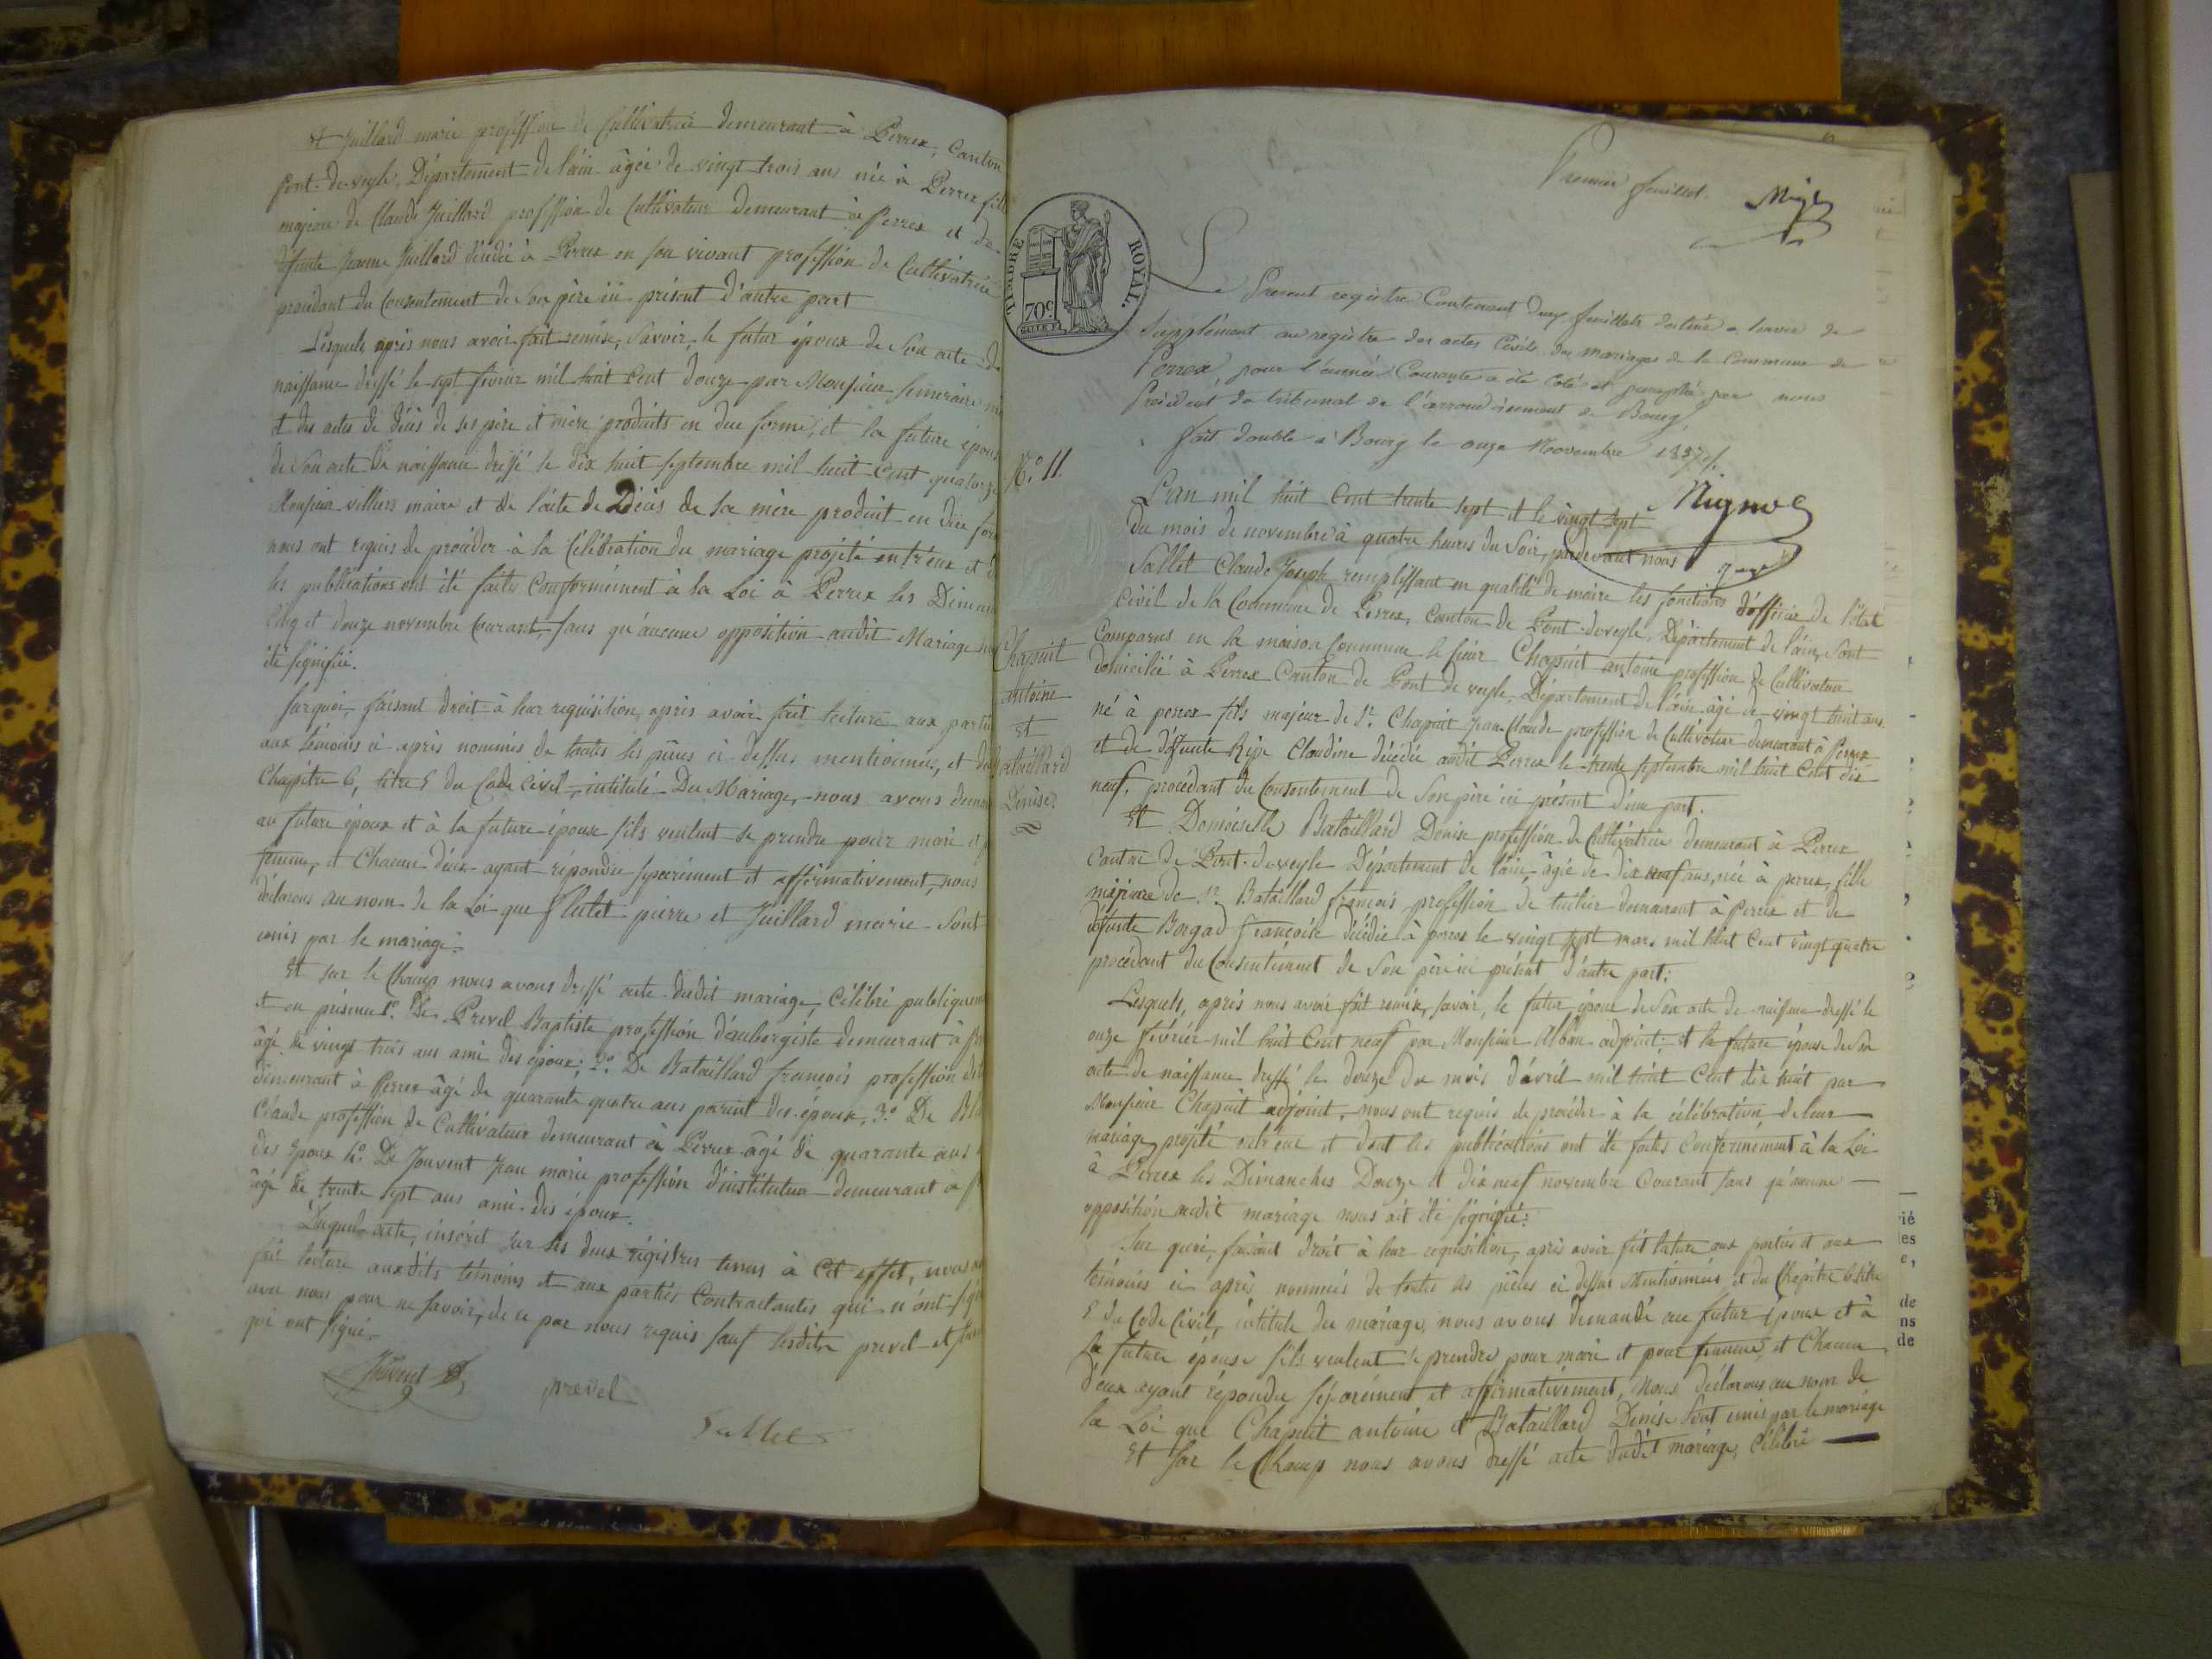 Et Juillard marie profession de Cultivatrice demeurant à Perrex, Canton
Pont-de-veyle, Département de l'ain âgée de vingt trois ans née à Perrex fille
majeure de Claude Juillard profession de Cultivateur demeurant à Perrex et de
défunte Jeanne Juillard décédée à Perrex en son vivant profession de Cultivatrice
procédant du Consentement de Son père ici présent d'autre part
Lesquels après nous avoir fait remise, Savoir, le futur époux de Son acte de
naissance dressé le sept février mil huit Cent douze par Monsieur
et des actes de décès de ses père et mère produits en due forme, et la future épouse
de Son acte de naissance dressé le dix huit septembre mil huit Cent quatorze
Monsieur villiers maire et de l'acte de Décès de Sa mère produit en due
nous ont requis de procéder à la Célébration du mariage projeté entr'eux et
les publications ont été faites Conformément à la Loi à Perrex les
Cinq et douze novembre Courant, Sans qu'aucune opposition audit Mariage
été signifiée.
Surquoi, faisant droit à leur réquisition, après avoir fait lecture aux
aux témoins ci-après nommés de toutes les pièces ci-dessus mentionnées, et du
Chapitre 6, titre 5 du Code Civil, intitulé Du Mariage, nous avons
au future époux et à la future épouse s'ils veulent se prendre pour mari et
femme, et Chacun d'eux ayant répondu séparément et affirmativement, nous
déclarons au nom de la Loi que pierre et Juillard marie Sont
unis par le mariage.
Et sur le Champ nous avons dressé acte dudit mariage, Célébré
et en présence 1º. De Prevel Baptiste profession d'aubergiste demeurant à
âgé de vingt trois ans ami des époux; 2º. De Bataillard françois profession
demeurant à Perrex âgé de quarante quatre ans parent des époux, 3º. De
Claude profession de Cultivateur demeurant à Perrex âgé de quarante ans
des époux 4º. De Jouvent Jean marie profession d'instituteur demeurant à
âgé de trente sept ans ami des époux.
Duquel acte, inscrit sur les deux régistres tenus à Cet effet, nous
fait lecture auxdits témoins et aux parties Contractantes qui n'ont
avec nous pour ne savoir, de ce par nous requis sauf lesdits prevel et
qui ont signé.
Jouvent
prevel
Sallet
Premier feuillet.
TIMBRE ROYAL.
70c
Le Présent registre Contenant deux feuillets destiné à servir de
Supplément au registre des actes Civils des mariages de la Commune de
Perrex, pour l'année Courante a été coté et paraphé par nous
Président du tribunal de l'arrondissement de Bourg,
fait double à Bourg le onze Novembre 1837.
Nº 11.
L'an mil huit Cent trente sept et le vingt sept
du mois de novembre à quatre heures du Soir, pardevant nous
Sallet Claude Joseph remplissant en qualité de maire les fonctions d'officier de l'état
Civil de la Commune de Perrex, Canton de Pont-deveyle, Département de l'ain, Sont
Comparus en la maison Commune le sieur Chapuit antoine profession de Cultivateur
domicilié à Perrex Canton de Pont de veyle, Département de l'ain âgé de vingt huit ans
né à perrex fils majeur de Sr. Chapuit Jean Claude profession de Cultivateur demeurant à Perrex
et de défunte Claudine décédée audit Perrex le trente septembre mil huit Cent dix
neuf, procédant du Consentement de Son père ici présent d'une part.
Chapuit
antoine
et
Bataillard
Denise.
Et Demoiselle Bataillard Denise profession de Cultivatrice demeurant à Perrex
Canton de Pont-deveyle Département de l'ain âgée de dix neuf ans, née à perrex, fille
majeure de Sr. Bataillard françois profession de demeurant à Perrex et de
défunte françoise décédée à perrex le vingt sept mars mil huit Cent vingt quatre
procédant du Consentement de Son père ici présent d'autre part:
Lesquels, après nous avoir fait remise, Savoir, le futur époux de Son acte de naissance dressé le
onze février mil huit Cent neuf par Monsieur Alban adjoint; et la future épouse de Son
acte de naissance dressé le douze du mois d'avril mil huit Cent dix huit par
Monsieur Chapuit adjoint, nous ont requis de procéder à la célébration de leur
mariage projeté entr'eux et dont les publications ont été faites Conformément à la Loi
à Perrex les Dimanches Douze et dix neuf novembre Courant sans qu'aucune
opposition audit mariage nous ait été signifié:
Sur quoi, faisant droit à leur réquisition, après avoir fait lecture aux parties et aux
témoins ci après nommés de toutes les pièces ci dessus Mentionnées et du Chapitre 6 titre
5 du Code Civil, intitulé du mariage, nous avons demandé au futur époux et à
la future épouse s'ils veulent se prendre pour mari et pour femme, et Chacun
d'eux ayant répondu séparément et affirmativement, Nous déclarons au nom de
la Loi que Chapuit antoine et Bataillard Denise Sont unis par le mariage
Et Sur le Champ nous avons dressé acte dudit mariage, Célébré
ié
es
e,
de
ns
de